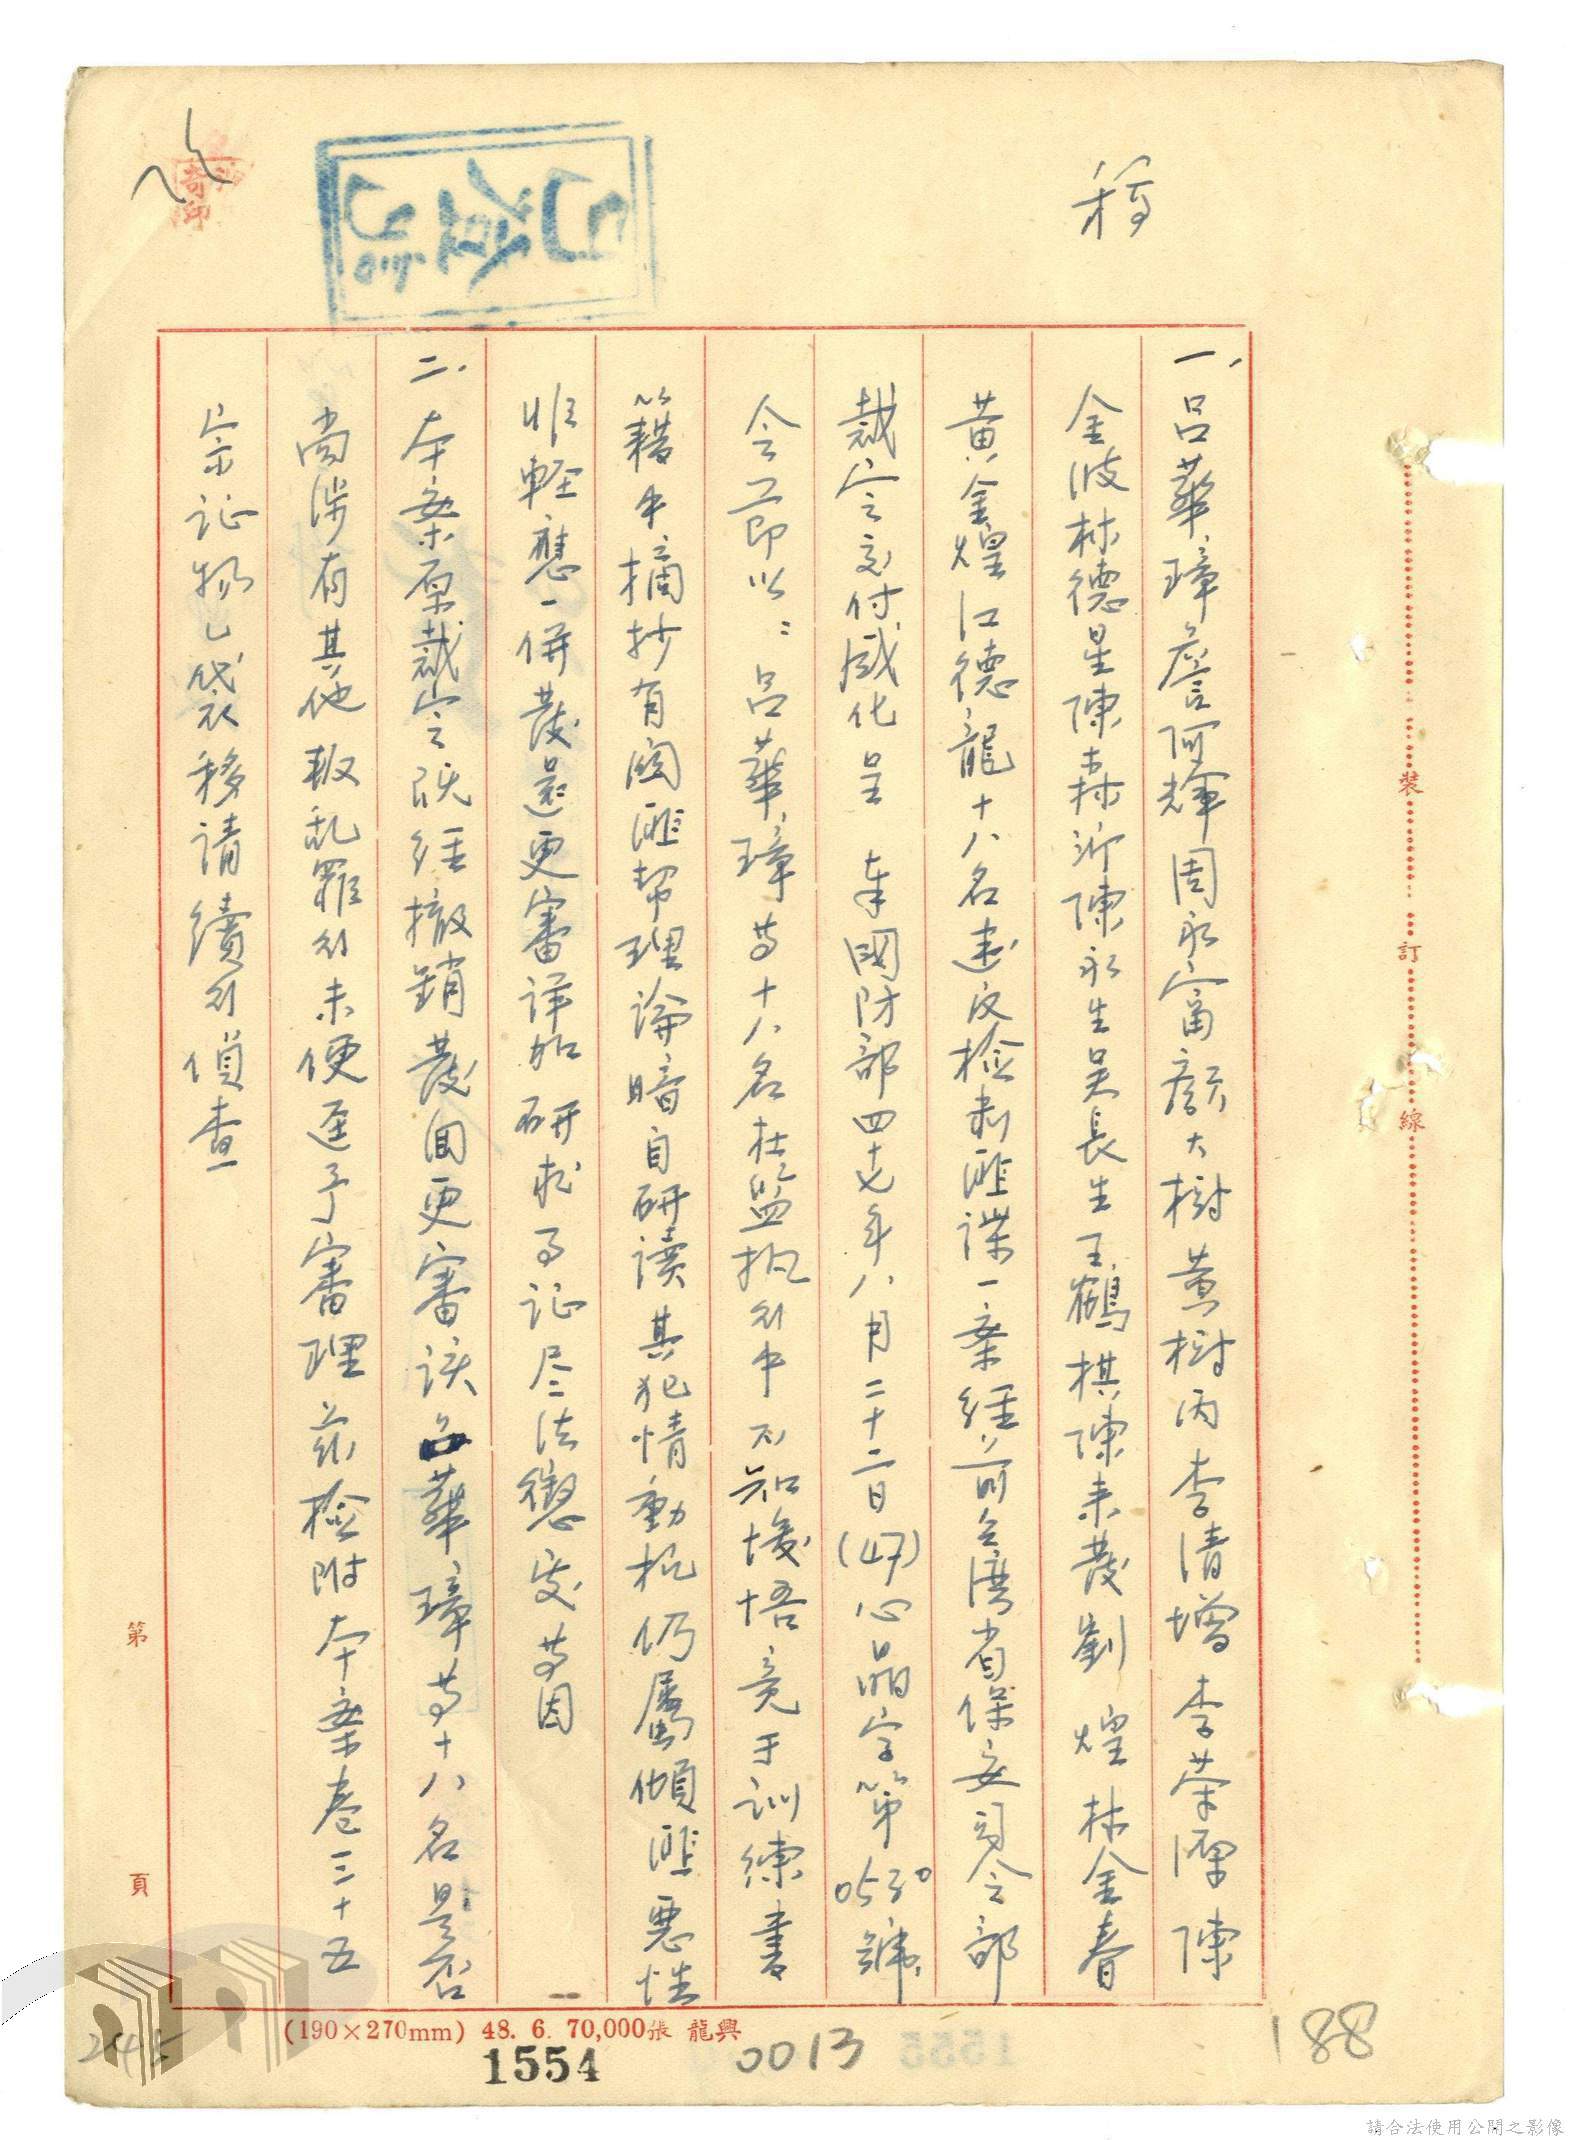 稿
一、呂華璋詹阿輝周永富顏大樹黃樹丙李清增李荣渾陳
金波林德星陳森沂陳永生吳長生王鶴棋陳来發劉煌林金春
黃金煌江德龍十八名違反檢肅匪諜一案經前台湾省保安司令部
裁定交付感化呈奉國防部四十七年八月二十二日(47)心晶字第0530號
令節以:呂華璋等十八名在監执行中不知悛悟竟于訓練書
籍中摘抄有関匪幫理論暗自研讀其犯情動机仍屬傾匪惡性
非輕應一併發還更審詳加研求事証尽法懲處等因
二、本案原裁定既经撤銷發回更審該呂華璋等十八名是否
尚涉有其他叛乱罪行未便逕予審理茲檢附本案卷三十五
宗証物乙袋移請續行偵查
裝
訂
線
第
頁
(190×270mm) 48. 6. 70,000張 龍興
1554
0013
188
245
請合法使用公開之影像